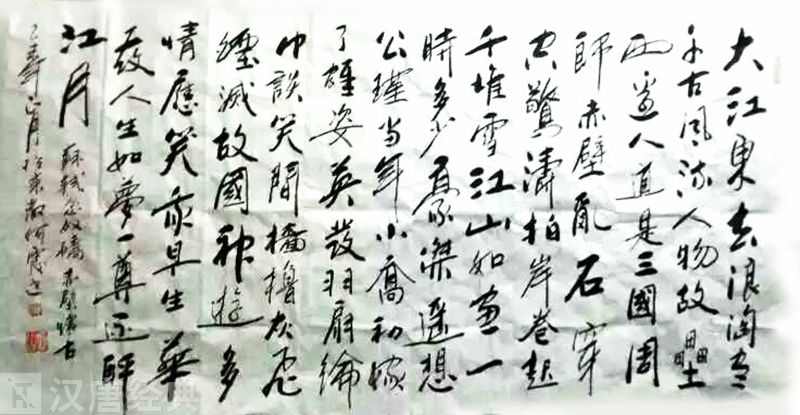 大江東去浪淘尽
千古風流人物故壘
西邊人道是三國周
郎赤壁亂石穿
空驚濤拍岸卷起
千堆雪江山如畫一
時多少豪傑遥想
公瑾当年小喬初嫁
了雄姿英發羽扇綸
巾談笑間檣櫓灰飛
煙滅故國神遊多
情應笑我早生華
發人生如夢一尊還酹
江月
蘇軾念奴嬌赤壁懷古
正月於東
汉唐经典